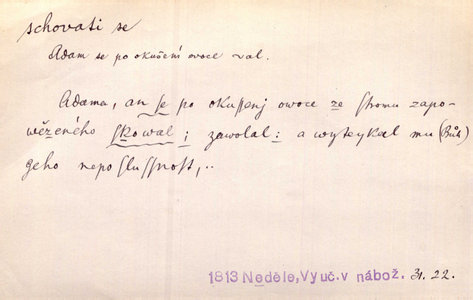 schovati se
Adam se po okušení ovoce
Adama, an se po okussenj owoce ze stromu zapo-
wězeného skowal; zawolal: a wytykal mu (Bůh)
geho neposlussnost,..
1813 Neděle, Vyuč. v nábož. 31. 22.